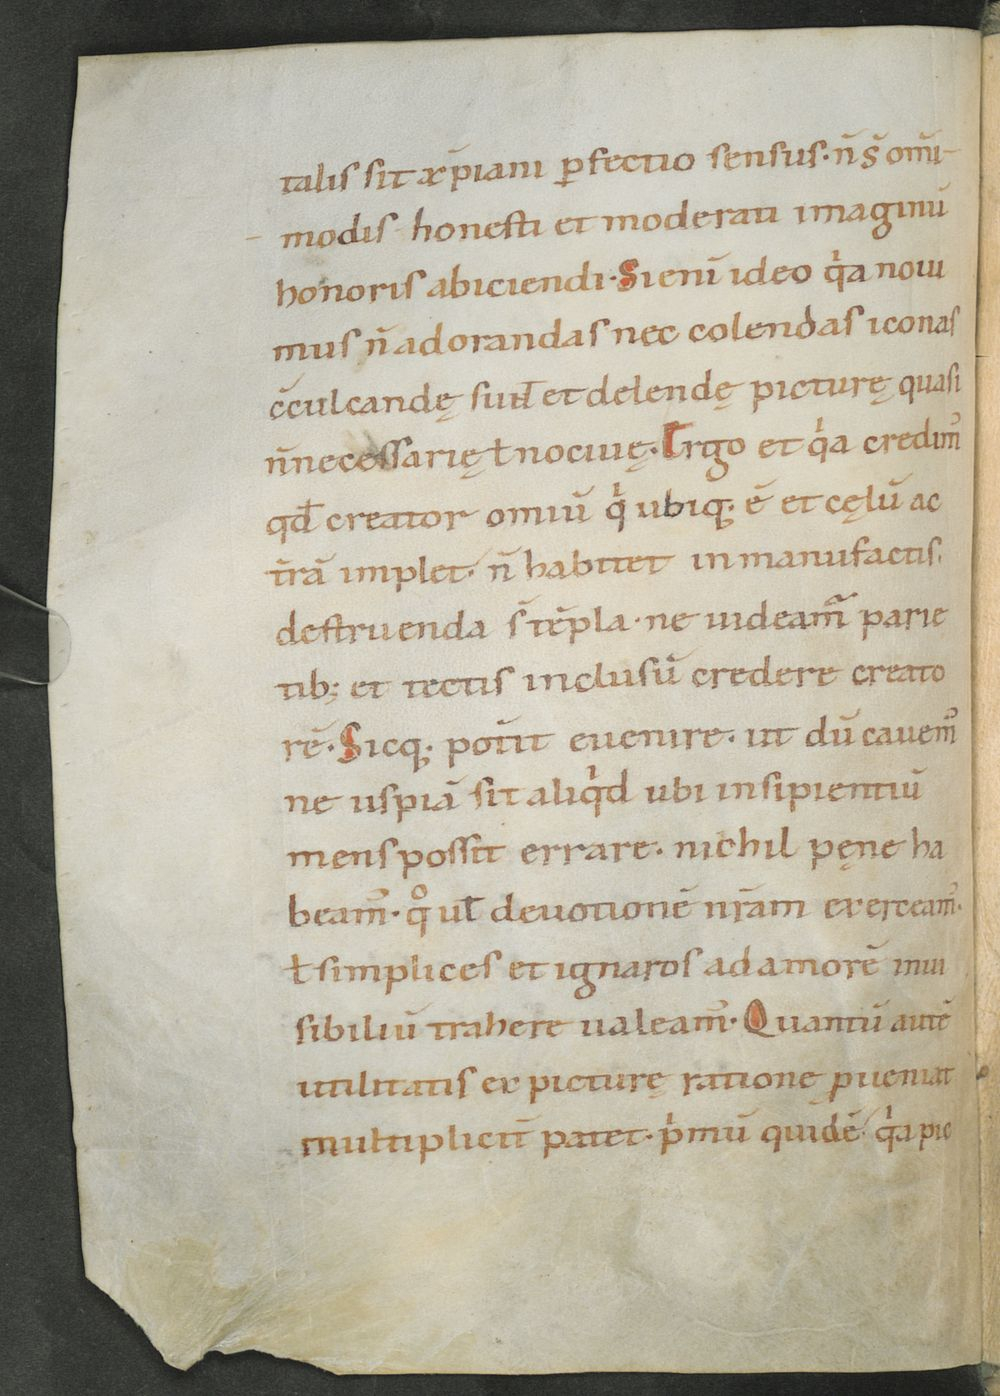 talis sit xp̄iani ꝑfectio sensus· n̄ s̄ om̄i-
modis honesti et moderati imaginū
honoris abiciendi· Si enī ideo qͥa noui
mus n̄ adorandas nec colendas iconas
c̄culcandę sunt et delendę picturę quasi
n̄ necessarię ł nociuę· Ergo et qͥa credimꝰ
qđ creator omiū qͥ ubiq; ē et cęlū ac
t̄rā implet· n̄ habitet in manufactis·
destruenda s̄ tēpla· ne uideam̄ parie
tib; et tectis inclusū credere creato
rē· Sicq; pot̄it euenire· ut dū cauemꝰ
ne uspiā sit aliqͥd ubi insipientiū
mens possit errare· nichil pęne ha
beamꝰ· qͦ uł deuotionē nr̄am exerceamꝰ·
ł simplices et ignaros ad amorē inui
sibiliū trahere ualeamꝰ· Quantū autē
utilitatis ex picturę ratione ꝓueniat
multiplicit̄ patet· pͥmū quidē· qͥa pic